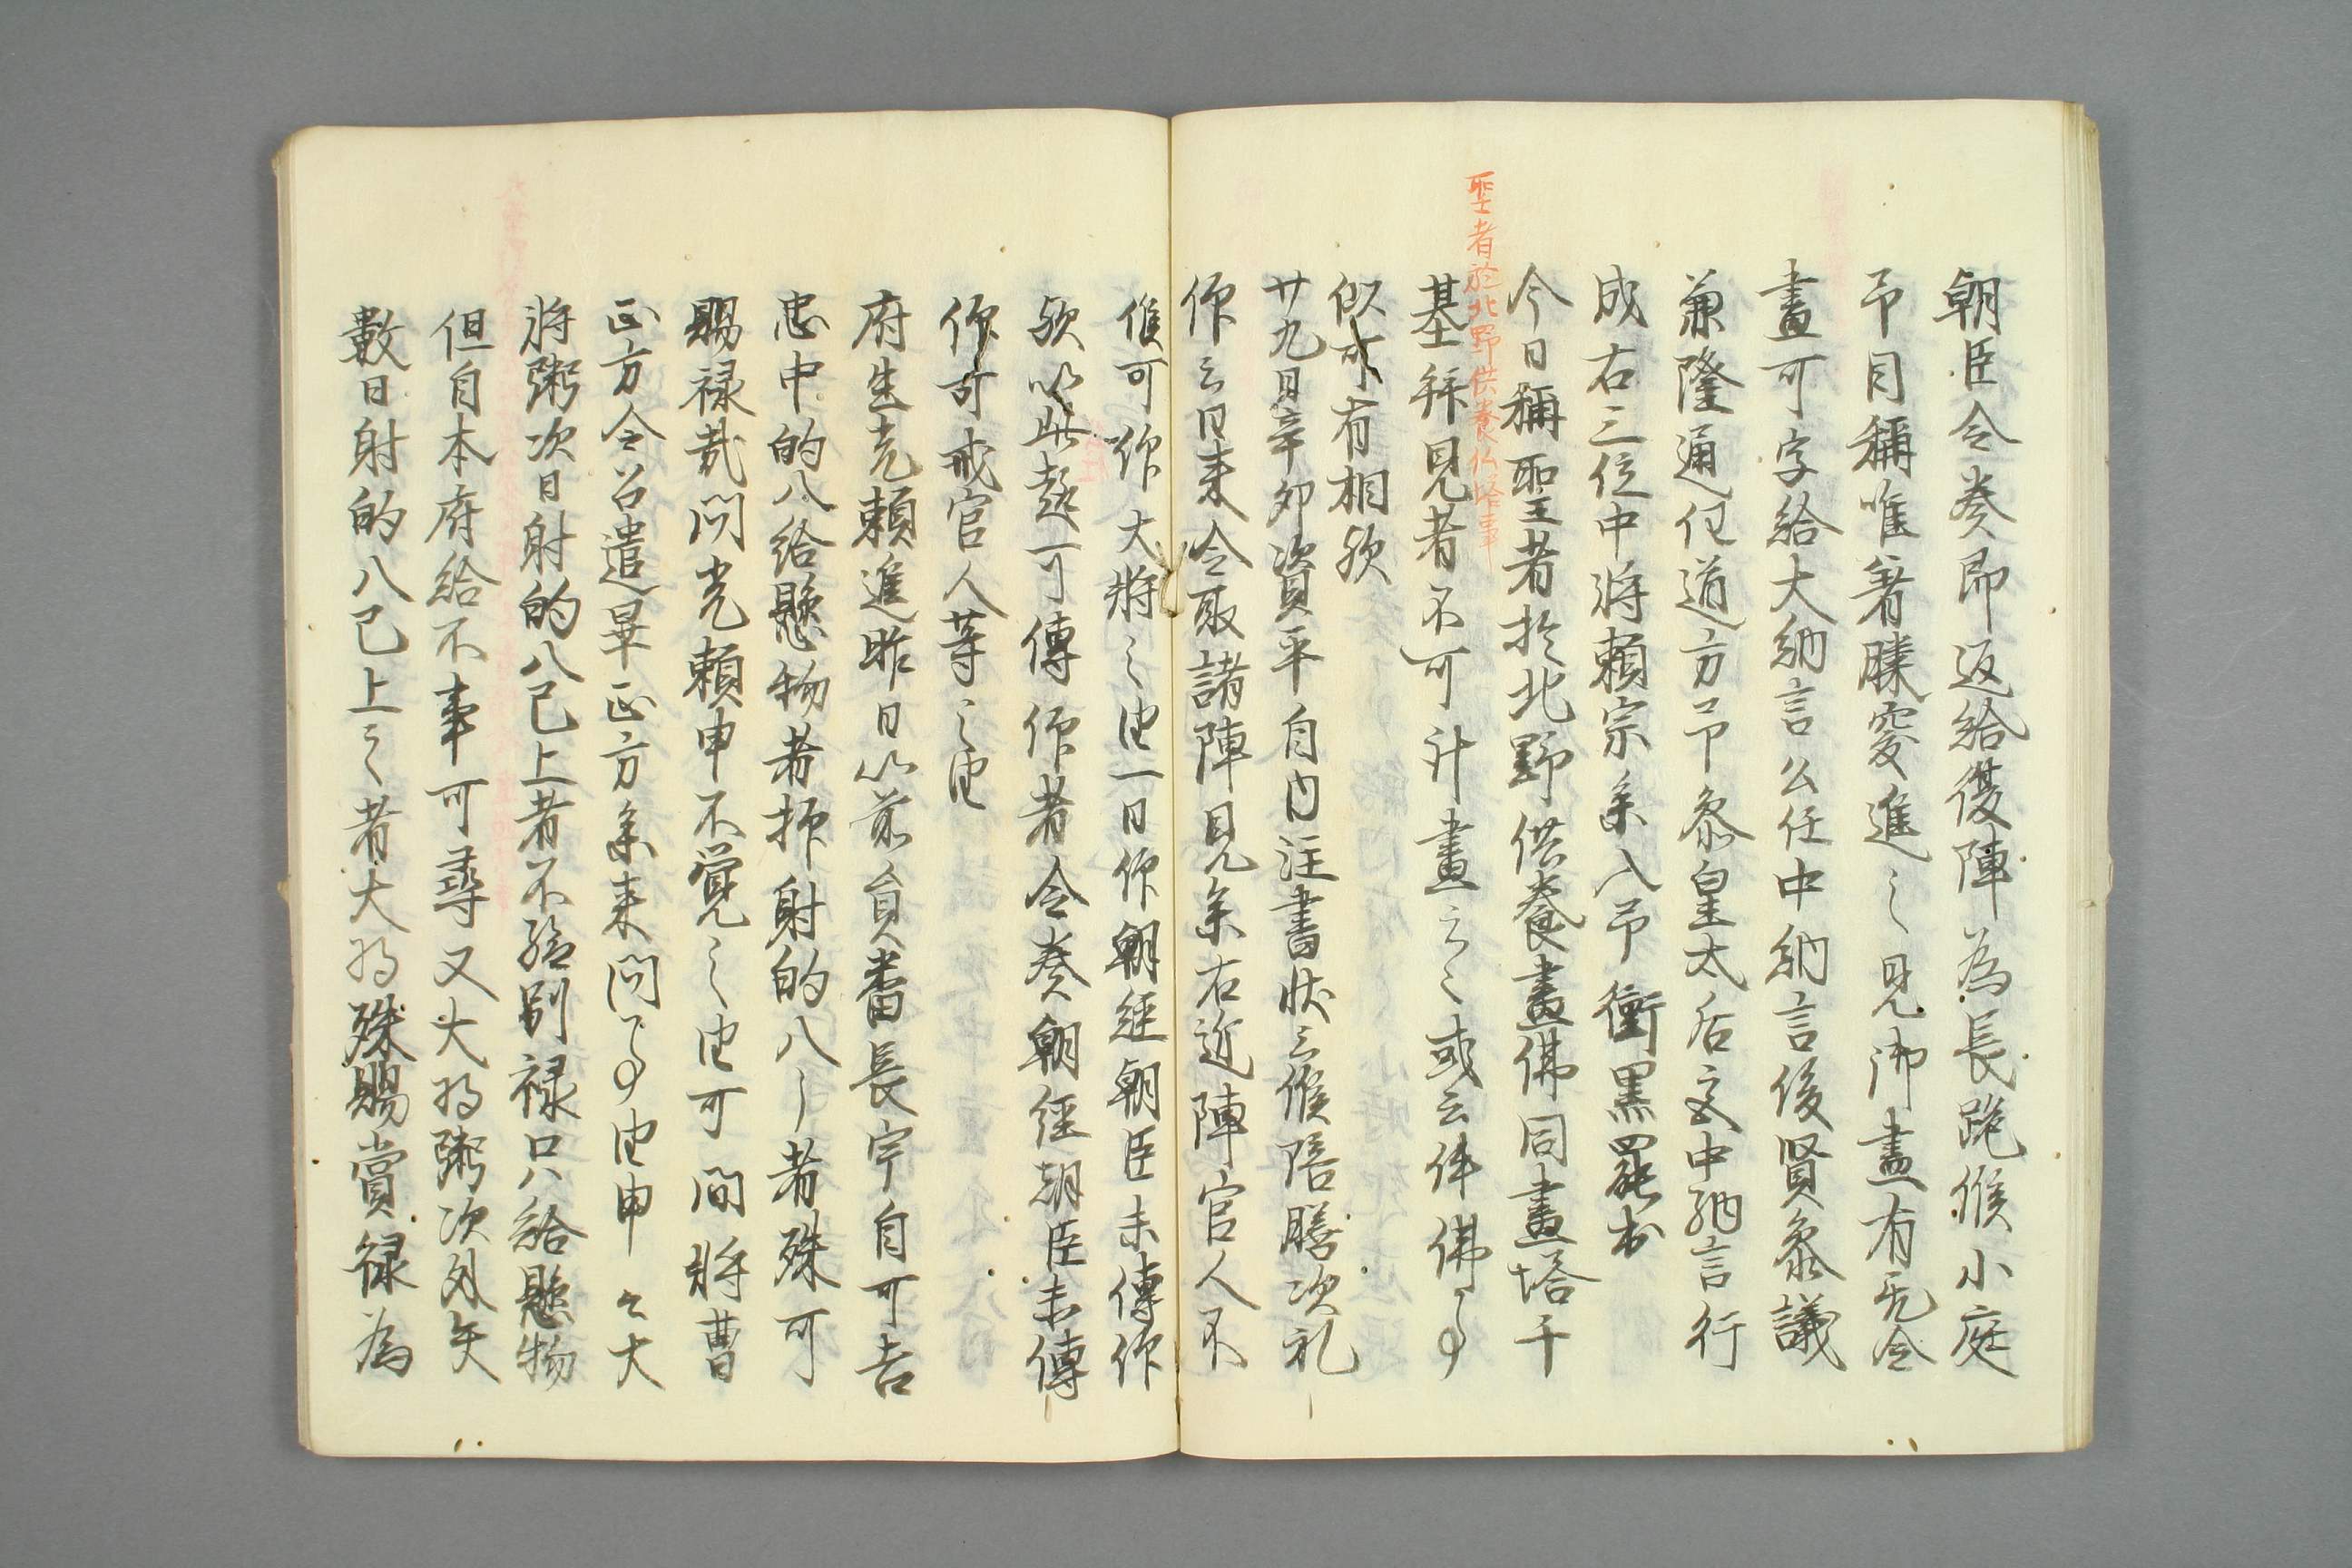 朝臣令奏即返給復陣為長跪候小庭
予目稱唯著膝突進之見御畫有無令
畫可字給大納言公任中納言俊賢參議
兼隆通任道方予參皇太后宮中納言行
成右三位中將賴宗參入予衝黒罷出
聖者於北野供養仏塔事
今日稱聖者於北野供養畫佛同畫塔千
基拜見者不可計盡云々或云件佛事
似可有相欤
廿九日辛卯資平自内注書状云候陪膳次礼
仰云日来令取諸陣見参右近陣官人不
候可仰大將之由一日仰朝経朝臣未傳仰
欤以此趣可傳仰者令奏朝経朝臣未傳
仰可戒官人等之由
府生光頼進昨日以前負番長宇自可吉
忠中的八給懸物者抑射的八之者殊可
賜禄哉問光頼申不覚之由可問將曹
正方令召遣畢正方参来問事由申云大
將粥次日射的八已上者不給別禄只給懸物
但自本府給不事可尋又大将粥次外矢
數日射的八已上之者大将殊賜賞禄為